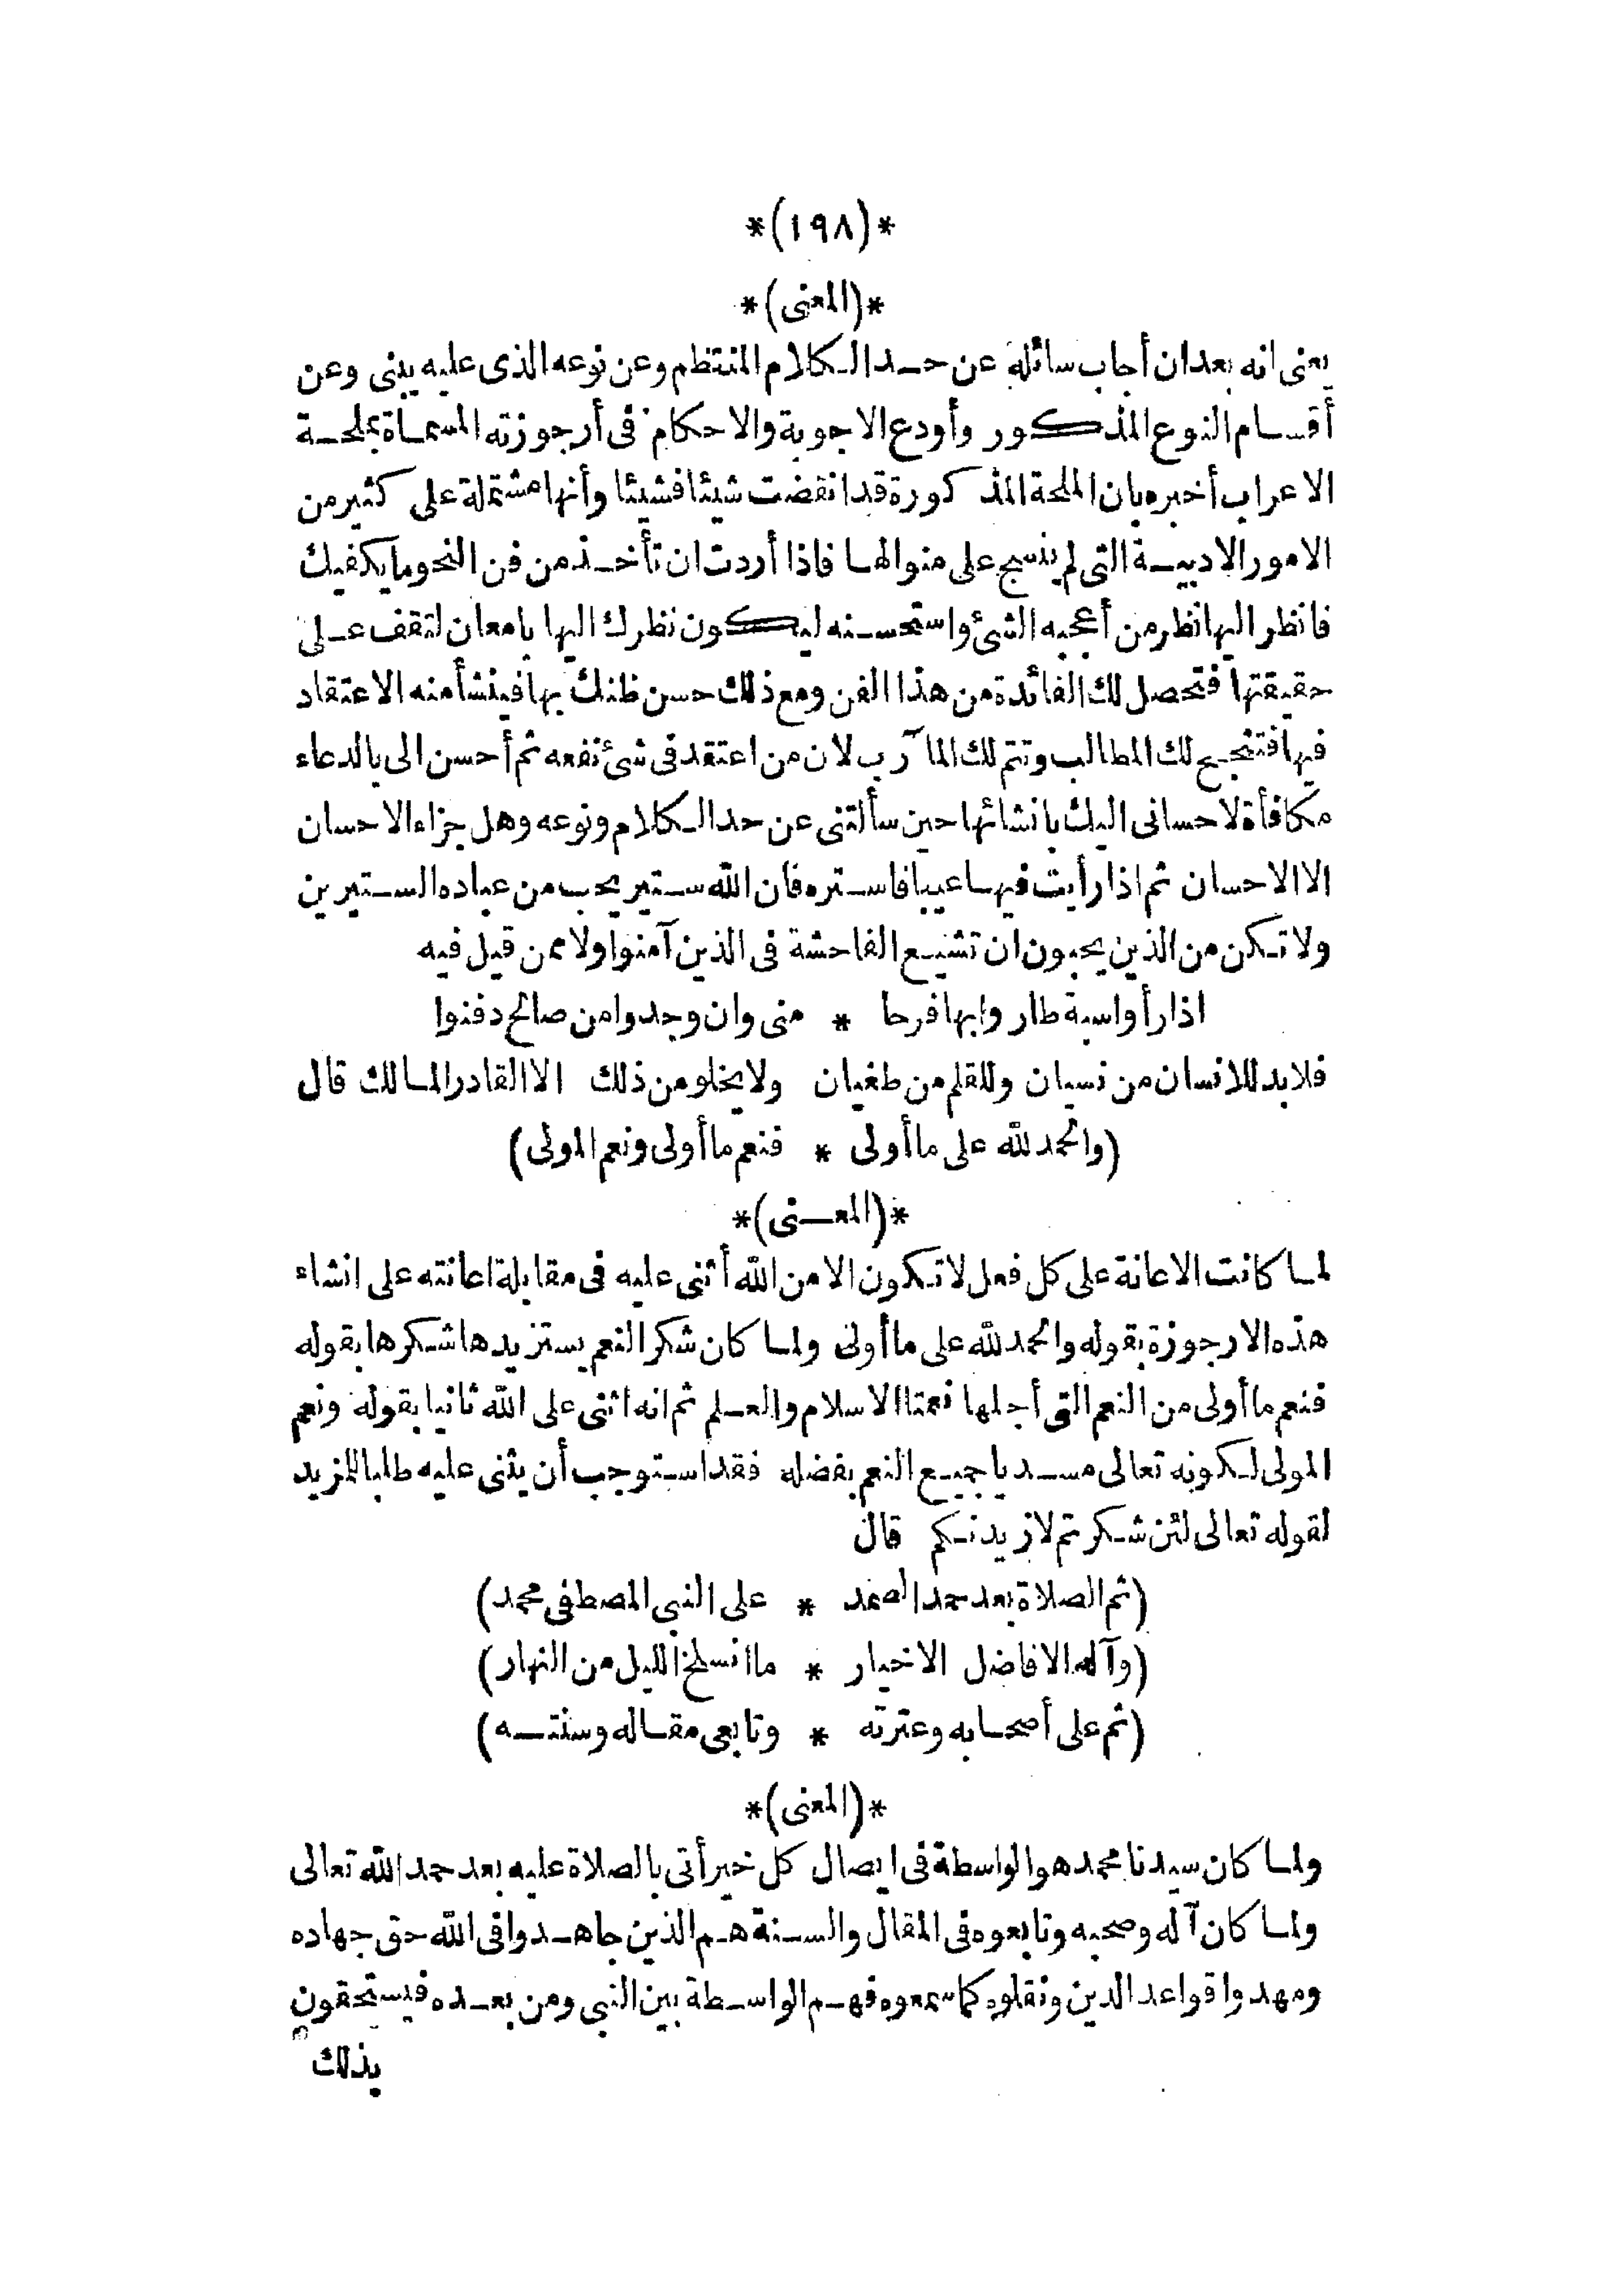 *(١٩٨)*
*(المعنى)*
يعنى انه بعد ان أجاب سائله عن حد الكلام المنتظم وعن نوعه الذى عليه يبنى وعن
أقسام النوع المذكور وأودع الاجوبة والاحكام فى أرجوزته المسماة بملحة
الاعراب أخبره بان الملحة المذكورة قد انقضت شيئا فشيئا وأنها مشتملة على كثير من
الامور الادبية التى لم ينسج على منوالها فاذا أردت ان تأخذ من فن النحو ما يكفيك
فانظر اليها نظر من أعجبه الشئ واستحسنه ليكون نظرك اليها بامعان لتقف على
حقيقتها فتحصل لك الفائدة من هذا الفن ومع ذلك حسن ظنك بها فينشأ منه الاعتقاد
فيها فتنجح لك المطالب وتتم لك المآرب لان من اعتقد فى شئ نفعه ثم أحسن الى بالدعاء
مكافأة لاحسانى اليك بانشائها حين سألتنى عن حد الكلام ونوعه وهل جزاء الاحسان
الا الاحسان ثم اذا رأيت فيها عيبا فاستره فان الله ستير يحب من عباده الستيرين
ولا تكن من الذين يحبون ان تشيع الفاحشة فى الذين آمنوا ولا ممن قيل فيه
اذا رأوا سبة طاروا بها فرحا * منى وان وجدوا من صالح دفنوا
فلا بد للانسان من نسيان وللقلم من طغيان ولا يخلو من ذلك الا القادر المالك قال
(والحمد لله على ما أولى * فنعم ما أولى ونعم المولى)
*(المعنى)*
لما كانت الاعانة على كل فعل لا تكون الا من الله أثنى عليه فى مقابلة اعانته على انشاء
هذه الارجوزة بقوله والحمد لله على ما أولى ولما كان شكر النعم يستزيدها شكرها بقوله
فنعم ما أولى من النعم التى أجلها نعمتا الاسلام والعلم ثم انه اثنى على الله ثانيا بقوله ونعم
المولى لكونه تعالى مسديا جميع النعم بفضله فقد استوجب أن يثنى عليه طلبا للمزيد
لقوله تعالى لئن شكرتم لازيدنكم قال
(ثم الصلاة بعد حمد الصمد * على النبى المصطفى محمد)
(وآله الافاضل الاخيار * ما انسلخ الليل من النهار)
(ثم على أصحابه وعترته * وتابعى مقاله وسنته)
*(المعنى)*
ولما كان سيدنا محمد هو الواسطة فى ايصال كل خير أتى بالصلاة عليه بعد حمد الله تعالى
ولما كان آله وصحبه وتابعوه فى المقال والسنة هم الذين جاهدوا فى الله حق جهاده
ومهدوا قواعد الدين ونقلوه كما سمعوه فهم الواسطة بين النبى ومن بعده فيستحقون
بذلك